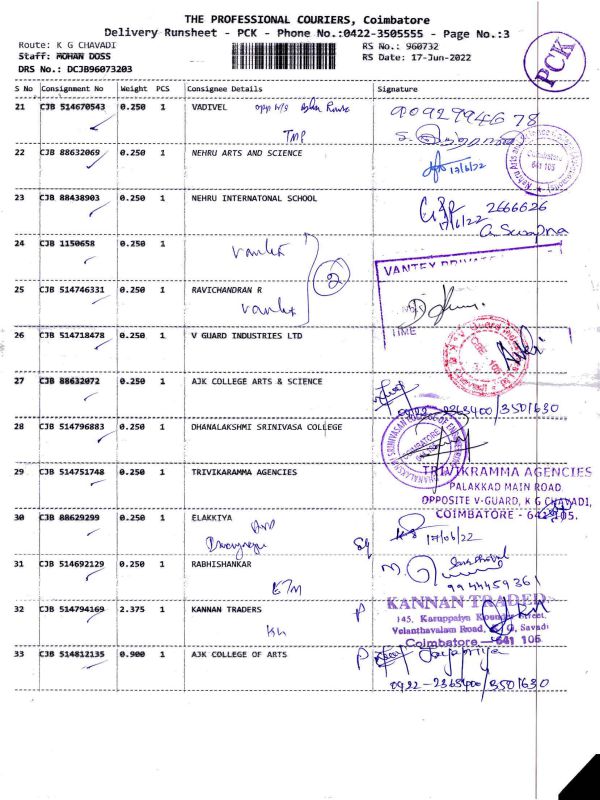 THE PROFESSIONAL COURIERS, Coimbatore
Delivery Runsheet - PCK - Phone No.:0422-3505555 - Page No.:3
Route: K G CHAVADI
RS No.: 960732
Staff: MOHAN DOSS
RS Date: 17-Jun-2022
DRS No.: DCJB96073203
PCK
S No Consignment No Weight PCS Consignee Details Signature
21 CJB 514670543 0.250 1 VADIVEL
TMP
22 CJB 88632069 0.250 1 NEHRU ARTS AND SCIENCE
17/6/22
Coimbatore
641 105
23 CJB 88438903 0.250 1 NEHRU INTERNATONAL SCHOOL
17/6/22 2666626
24 CJB 1150658 0.250 1
2
25 CJB 514746331 0.250 1 RAVICHANDRAN R
TIME
26 CJB 514718478 0.250 1 V GUARD INDUSTRIES LTD
27 CJB 88632072 0.250 1 AJK COLLEGE ARTS & SCIENCE
0422-2365400/3501630
28 CJB 514796883 0.250 1 DHANALAKSHMI SRINIVASA COLLEGE
29 CJB 514751748 0.250 1 TRIVIKARAMMA AGENCIES
TRIVIKRAMMA AGENCIES
PALAKKAD MAIN ROAD
OPPOSITE V-GUARD, K G CHAVADI,
COIMBATORE - 641 105.
30 CJB 88629299 0.250 1 ELAKKIYA
17/06/22
31 CJB 514692129 0.250 1 RABHISHANKAR
9944459361
ETM
32 CJB 514794169 2.375 1 KANNAN TRADERS P
KANNAN TRADER
145, Karuppaiya Kounder Street,
Velanthavalam Road, K. G. Savadi
Coimbatore - 641 105
33 CJB 514812135 0.900 1 AJK COLLEGE OF ARTS P
0422-2365400/3501630